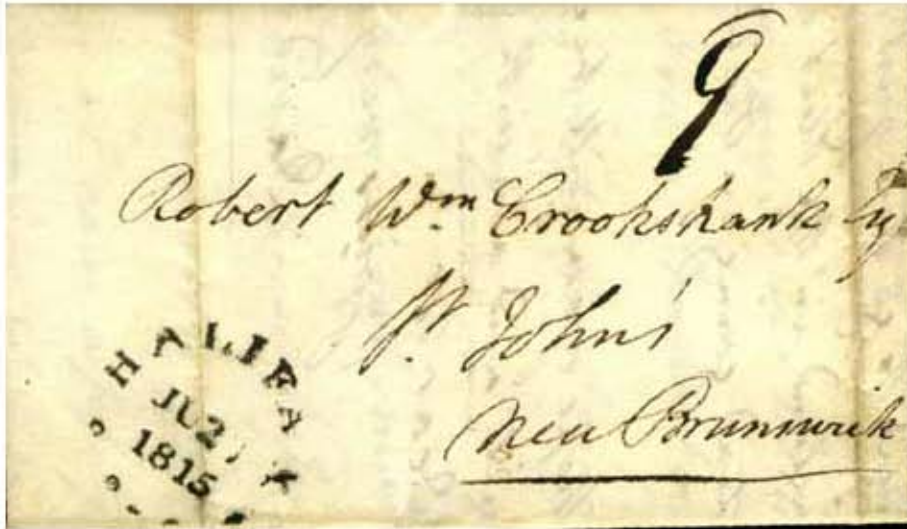 9
Robert Wm Crookshank Esq
St Johns
New Brunswick
HALIFAX
JU 27
1815